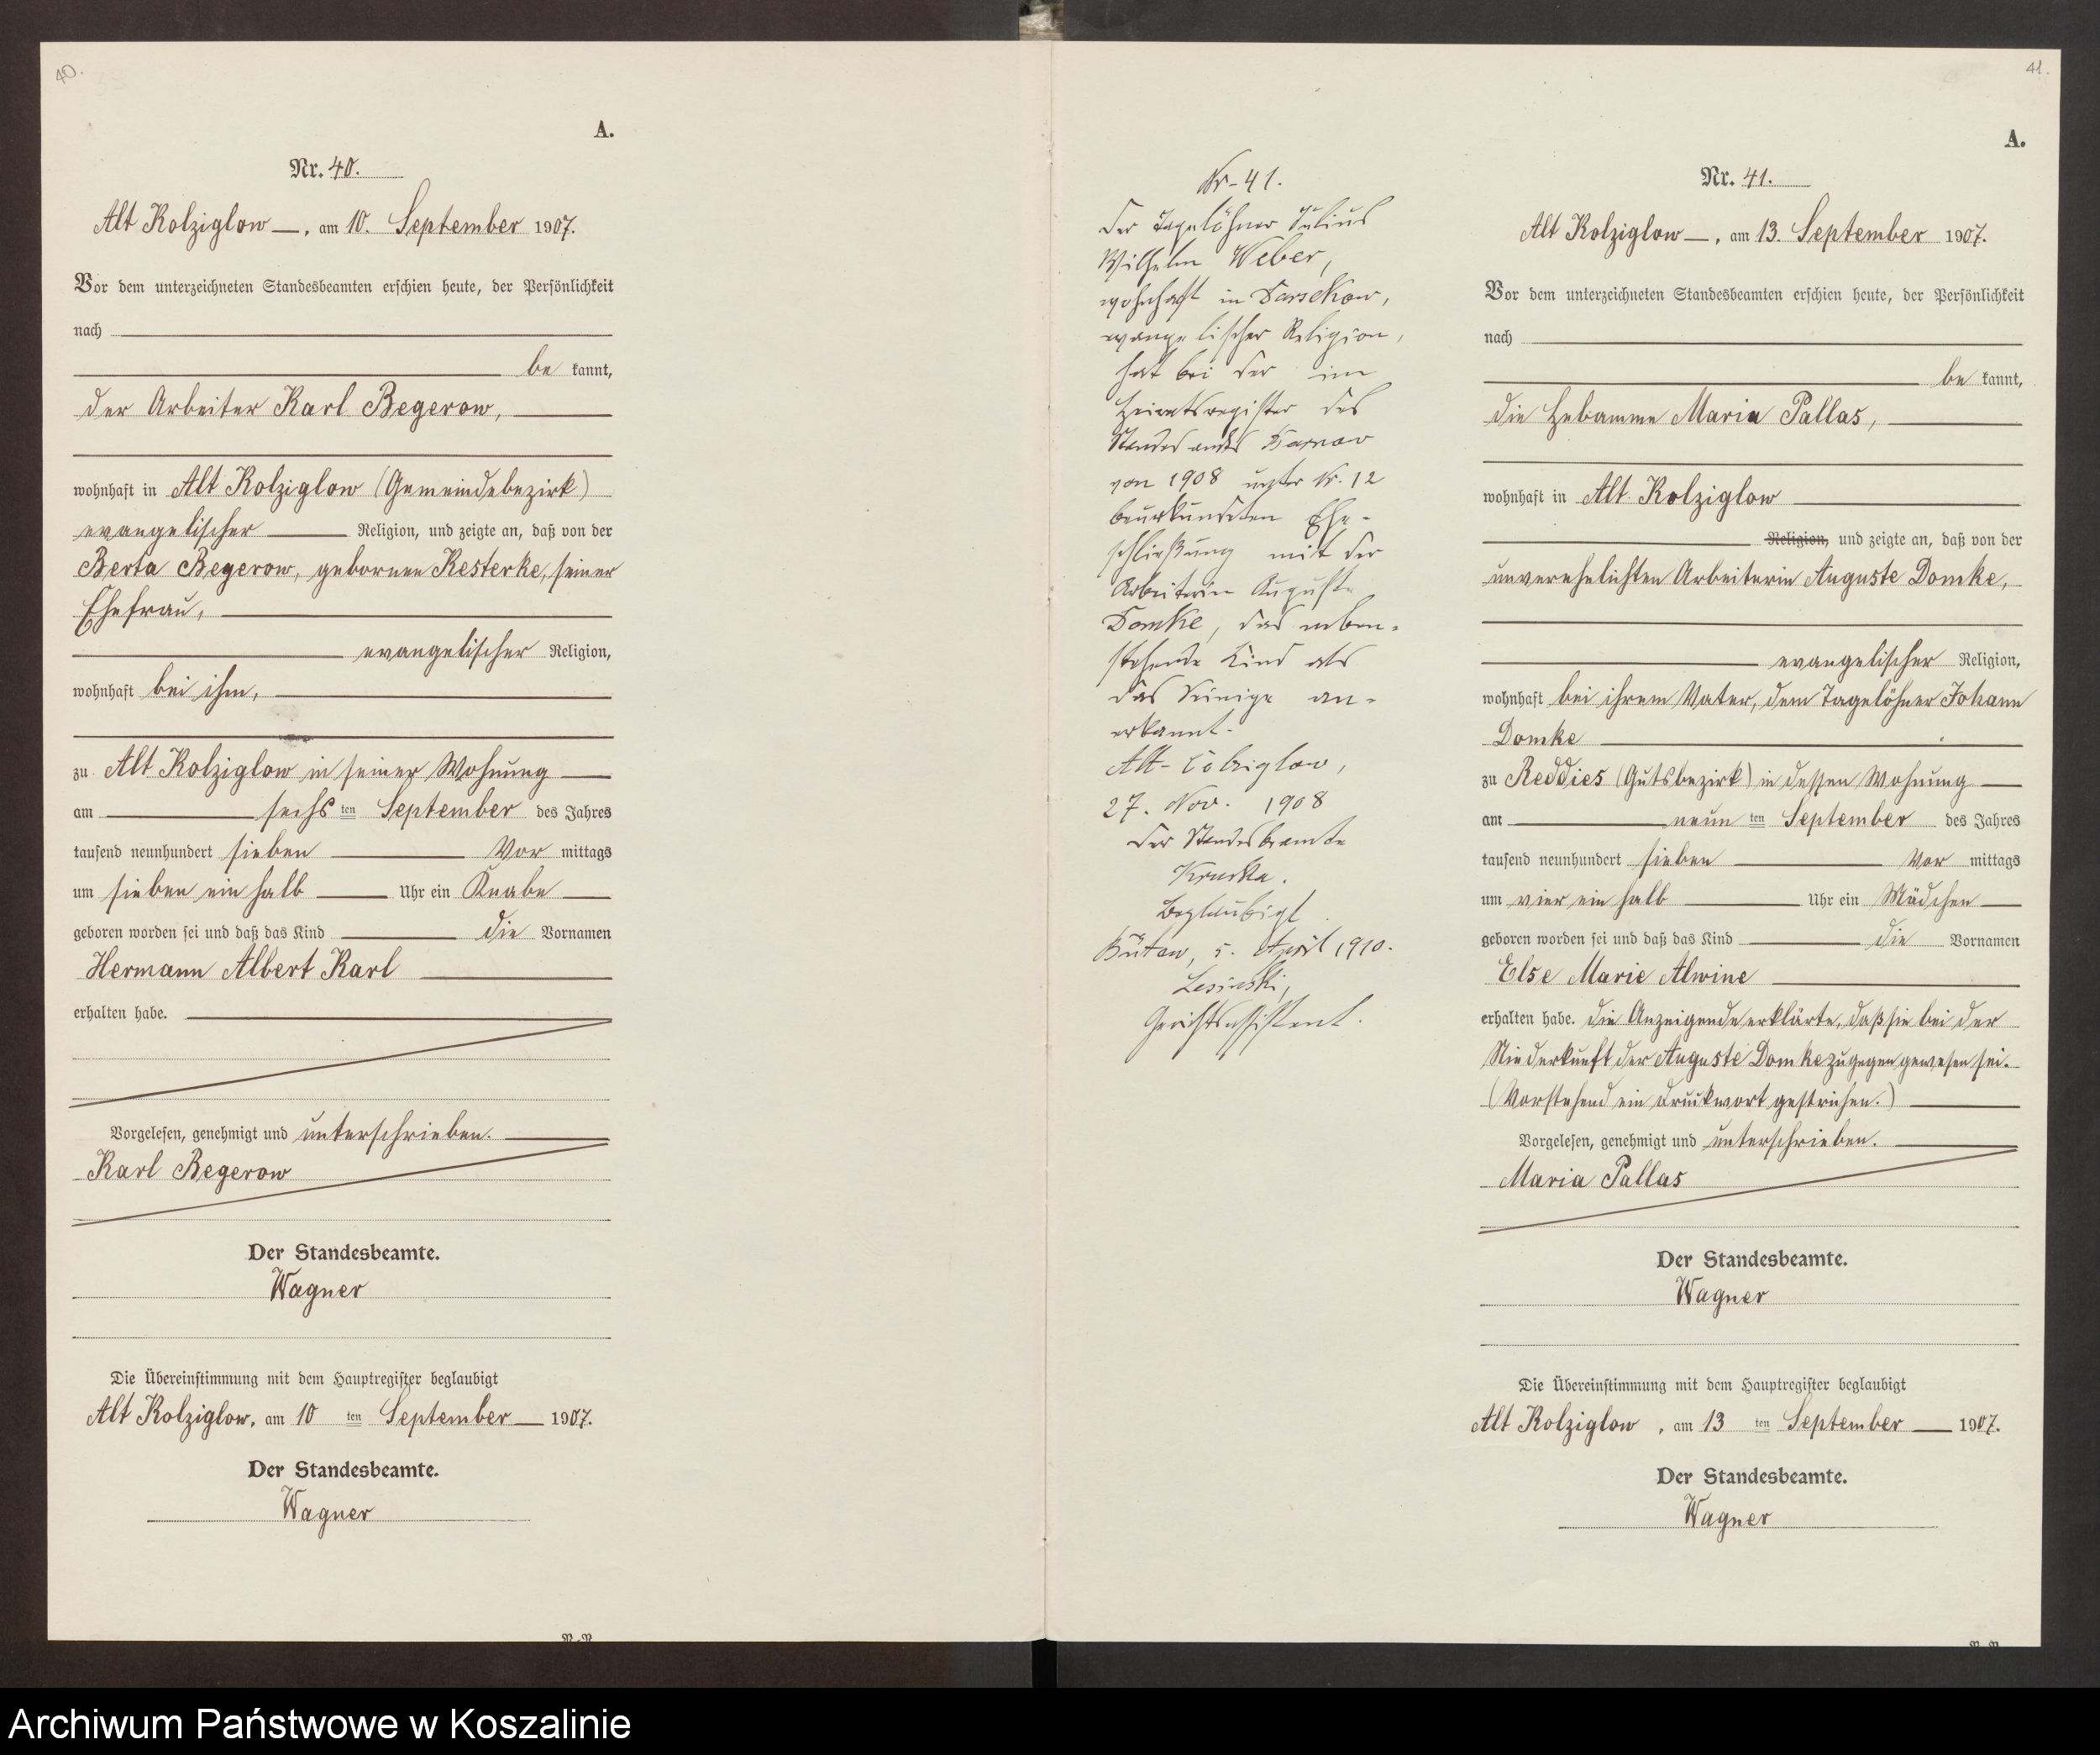 40.
A.
Nr. 40.
Alt Kolziglow, am 10. September 1907.
Vor dem unterzeichneten Standesbeamten erschien heute, der Persönlichkeit
nach
be kannt,
der Arbeiter Karl Begerow,
wohnhaft in Alt Kolziglow (Gemeindebezirk)
evangelischer Religion, und zeigte an, daß von der
Berta Begerow, gebornen Kesterke, seiner
Ehefrau,
evangelischer Religion,
wohnhaft bei ihm,
zu Alt Kolziglow in seiner Wohnung
am sechs ten September des Jahres
tausend neunhundert sieben Vor mittags
um sieben ein halb Uhr ein Knabe
geboren worden sei und daß das Kind die Vornamen
Hermann Albert Karl
erhalten habe.
Vorgelesen, genehmigt und unterschrieben.
Karl Begerow
Der Standesbeamte.
Wagner
Die Übereinstimmung mit dem Hauptregister beglaubigt
Alt Kolziglow, am 10 ten September 1907.
Der Standesbeamte.
Wagner
Nr. 41.
Der Tagelöhner Julius
Wilhelm Weber,
wohnhaft in Darsekow,
evangelischer Religion,
hat bei der im
Heiratsregister des
Standesamts
von 1908 unter Nr. 12
beurkundeten Ehe-
schließung mit der
Arbeiterin Auguste
Domke, das neben-
stehende Kind als
das Seinige an-
erkannt.
Alt-Colziglow,
27. Nov. 1908
Der Standesbeamte
Beglaubigt
Bütow, 5. April 1910.
Lesinski,
Gerichtsassistent.
41.
A.
Nr. 41.
Alt Kolziglow, am 13. September 1907.
Vor dem unterzeichneten Standesbeamten erschien heute, der Persönlichkeit
nach
be kannt,
die Hebamme Maria Pallas,
wohnhaft in Alt Kolziglow
Religion, und zeigte an, daß von der
unverehelichten Arbeiterin Auguste Domke,
evangelischer Religion,
wohnhaft bei ihrem Vater, dem Tagelöhner Johann
Domke
zu Reddies (Gutsbezirk) in dessen Wohnung
am neun ten September des Jahres
tausend neunhundert sieben Vor mittags
um vier ein halb Uhr ein Mädchen
geboren worden sei und daß das Kind die Vornamen
Else Marie Alwine
erhalten habe. Die Anzeigende erklärte, daß sie bei der
Niederkunft der Auguste Domke zugegen gewesen sei.
(Vorstehend ein Druckwort gestrichen.)
Vorgelesen, genehmigt und unterschrieben.
Maria Pallas
Der Standesbeamte.
Wagner
Die Übereinstimmung mit dem Hauptregister beglaubigt
Alt Kolziglow, am 13 ten September 1907.
Der Standesbeamte.
Wagner
Archiwum Państwowe w Koszalinie